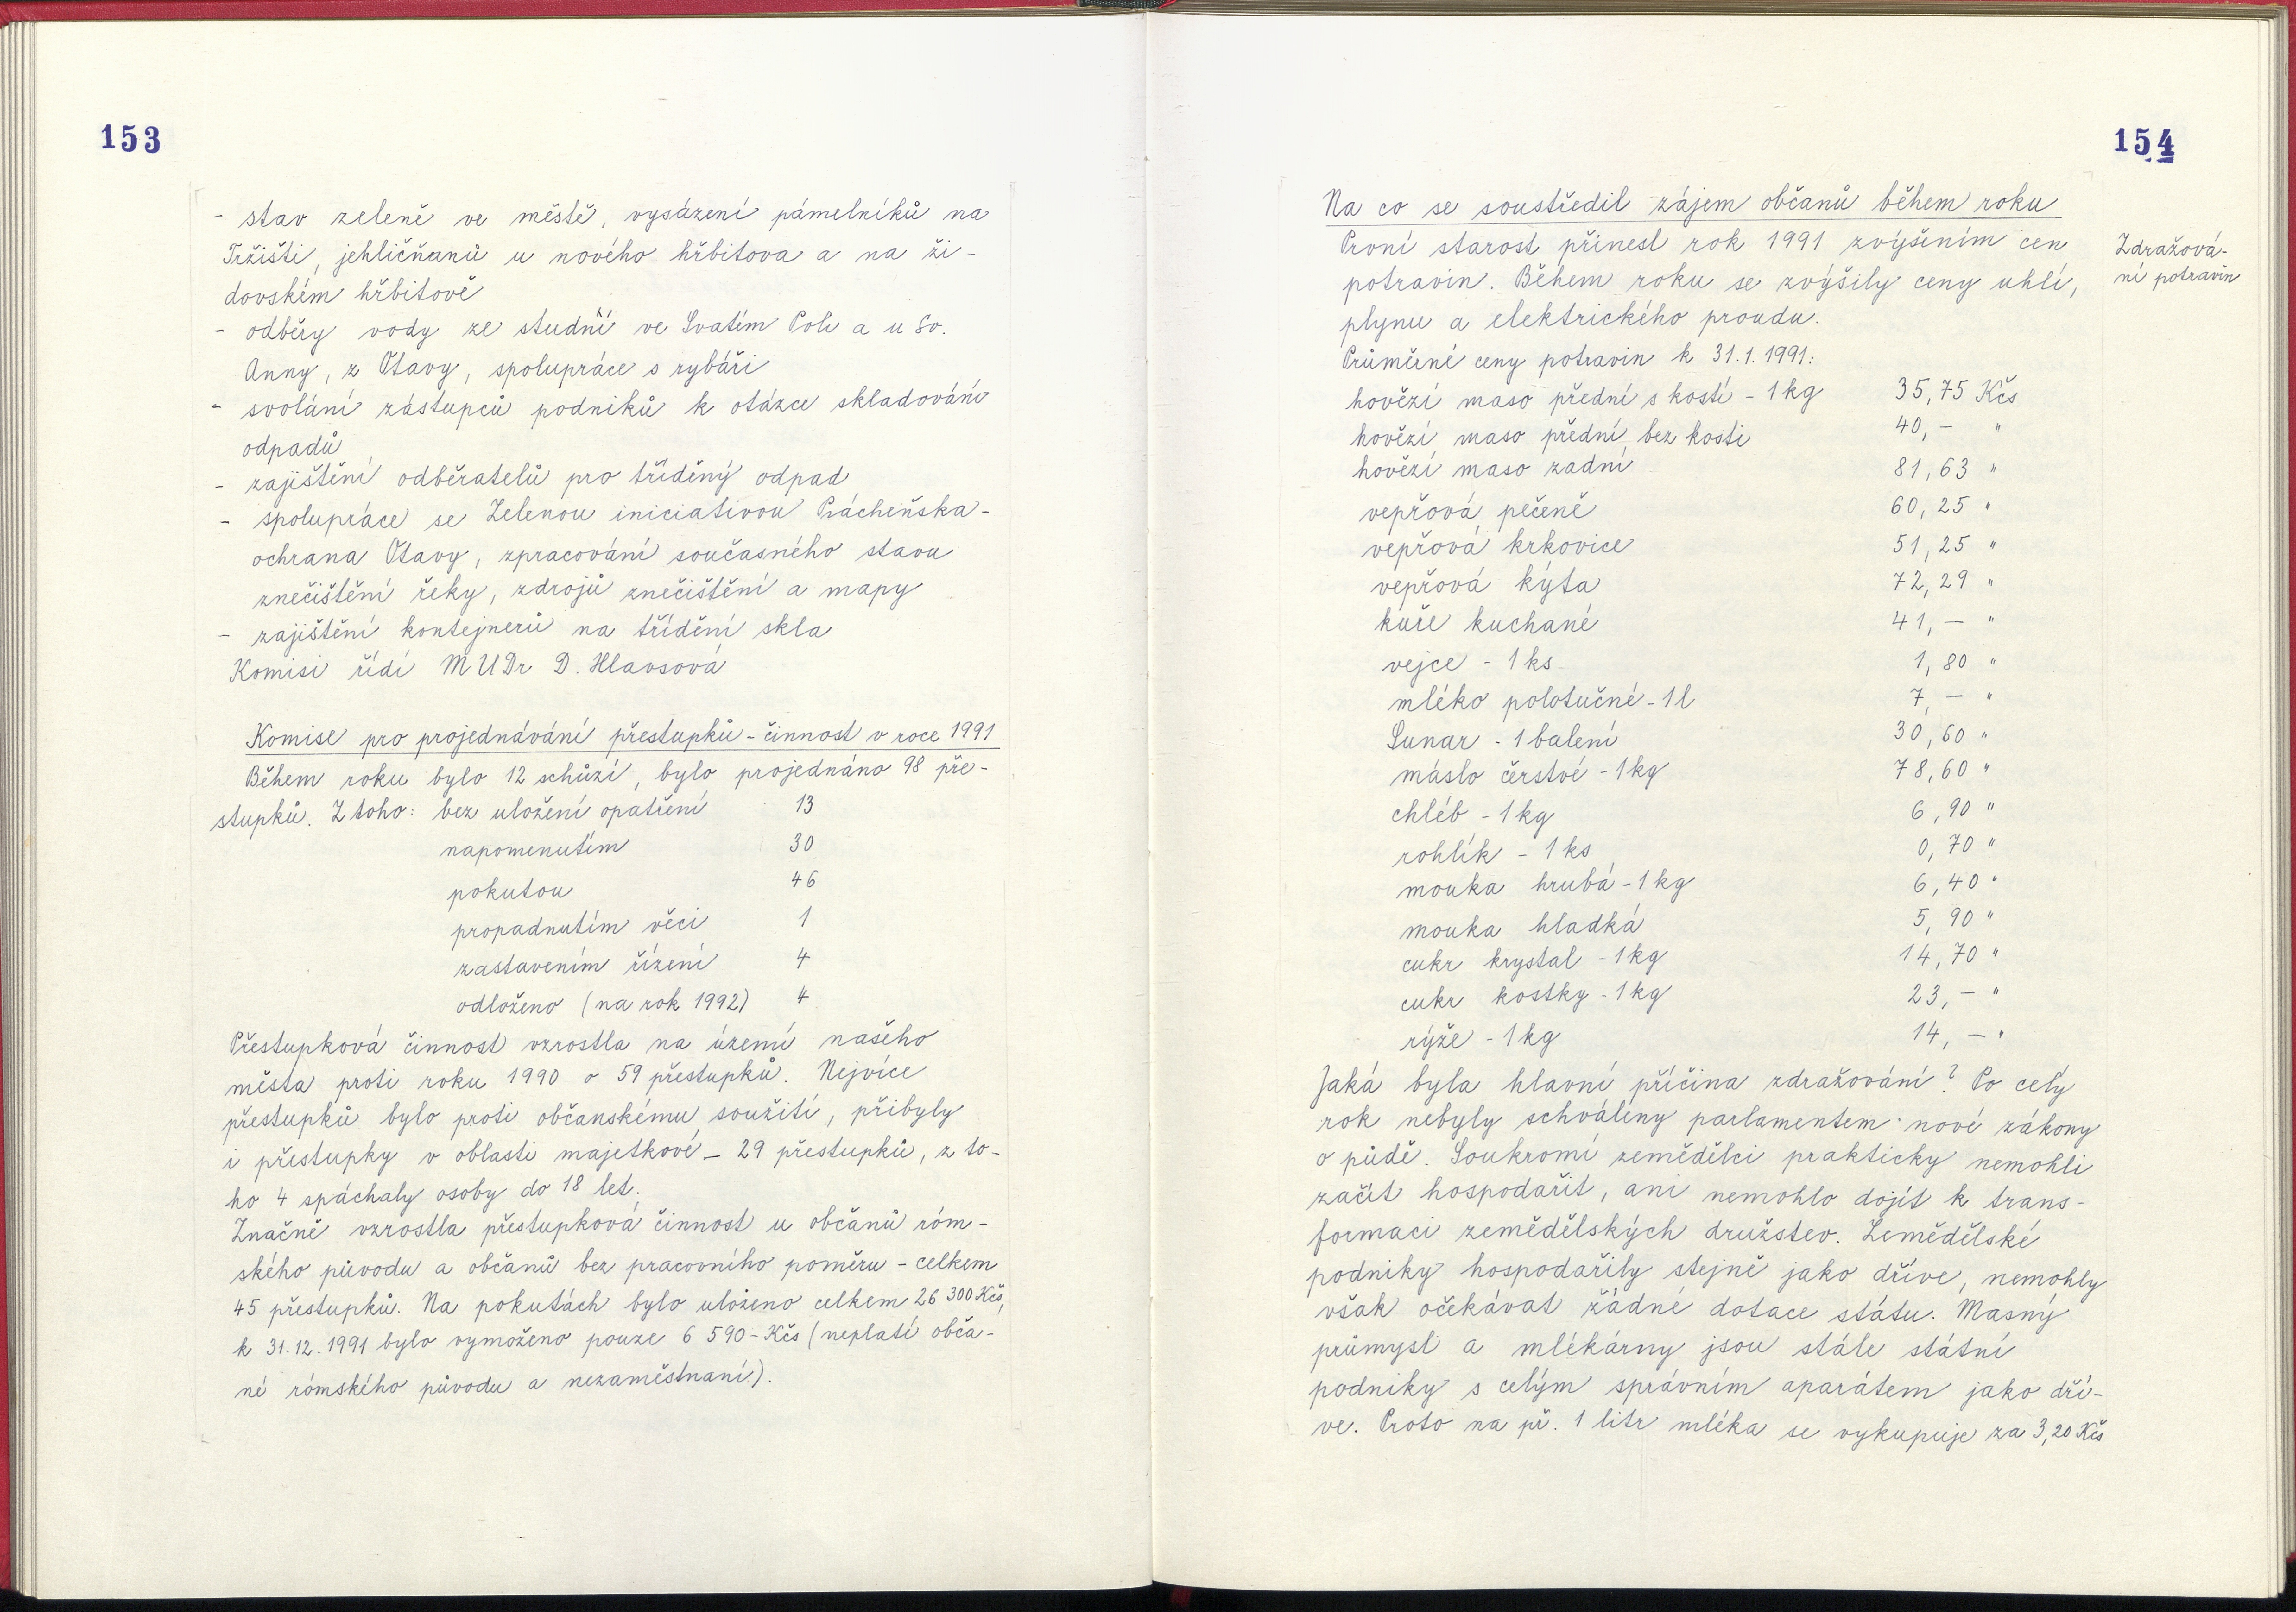 153
- stav zeleně ve městě, vysázení pámelníků na
Tržišti, jehličňanů u nového hřbitova a na ži-
dovském hřbitově
- odběry vody ze studní ve Svatém Poli a u Sv.
Anny, z Otavy, spolupráce s rybáři
- svolání zástupců podniků k otázce skladování
odpadů
- zajištění odběratelů pro tříděný odpad
- spolupráce se Zelenou iniciativou Prácheňska-
ochrana Otavy, zpracování současného stavu
znečištění řeky, zdrojů znečištění a mapy
- zajištění kontejnerů na třídění skla
Komisi řídí MUDr D. Hlavsová
Komise pro projednávání přestupků - činnost v roce 1991
Během roku bylo 12 schůzí, bylo projednáno 98 pře-
stupků. Z toho: bez uložení opatření 13
napomenutím 30
pokutou 46
propadnutím věci 1
zastavením řízení 4
odloženo (na rok 1992) 4
Přestupková činnost vzrostla na území našeho
města proti roku 1990 o 59 přestupků. Nejvíce
přestupků bylo proti občanskému soužití, přibyly
i přestupky v oblasti majetkové - 29 přestupků, z to-
ho 4 spáchaly osoby do 18 let.
Značně vzrostla přestupková činnost u občanů róm-
ského původu a občanů bez pracovního poměru - celkem
45 přestupků. Na pokutách bylo uloženo celkem 26 300 Kčs,
k 31.12.1991 bylo vymoženo pouze 6 590 - Kčs (neplatí obča-
né rómského původu a nezaměstnaní).
154
Na co se soustředil zájem občanů během roku
První starost přinesl rok 1991 zvýšením cen
Zdražová-
ní potravin
potravin. Během roku se zvýšily ceny uhlí,
plynu a elektrického proudu.
Průměrné ceny potravin k 31.1.1991:
hovězí maso přední s kostí - 1 kg 35,75 Kčs
hovězí maso přední bez kosti 40,- "
hovězí maso zadní 81,63 "
vepřová pečeně 60,25 "
vepřová krkovice 51,25 "
vepřová kýta 72,29 "
kuře kuchané 41,- "
vejce - 1 ks 1,80 "
mléko polotučné - 1 l 7,- "
Sunar - 1 balení 30,60 "
máslo čerstvé - 1 kg 78,60 "
chléb - 1 kg 6,90 "
rohlík - 1 ks 0,70 "
mouka hrubá - 1 kg 6,40 "
mouka hladká 5,90 "
cukr krystal - 1 kg 14,70 "
cukr kostky - 1 kg 23,- "
rýže - 1 kg 14,- "
Jaká byla hlavní příčina zdražování? Po celý
rok nebyly schváleny parlamentem nové zákony
o půdě. Soukromí zemědělci prakticky nemohli
začít hospodařit, ani nemohlo dojít k trans-
formaci zemědělských družstev. Zemědělské
podniky hospodařily stejně jako dříve, nemohly
však očekávat žádné dotace státu. Masný
průmysl a mlékárny jsou stále státní
podniky s celým správním aparátem jako dří-
ve. Proto na př. 1 litr mléka se vykupuje za 3,20 Kčs